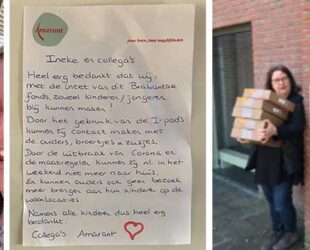 Amarant
jouw leven, jouw mogelijkheden
Ineke en collega's
Heel erg bedankt dat wij,
met de inzet van dit Brabantse
fonds, zoveel kinderen/jongeren
bij kunnen maken!
Door het gebruik van de I-pads
kunnen zij contact maken met
de ouders, broertjes + zusjes.
Door de uitbraak van Corona en
de maatregelen kunnen zij nl. in het
weekend niet meer naar huis.
En kunnen ouders ook geen bezoek
meer brengen aan hun kinderen op de
woonlocaties.
Namens alle kinderen dus heel erg
bedankt.
Collega's Amarant